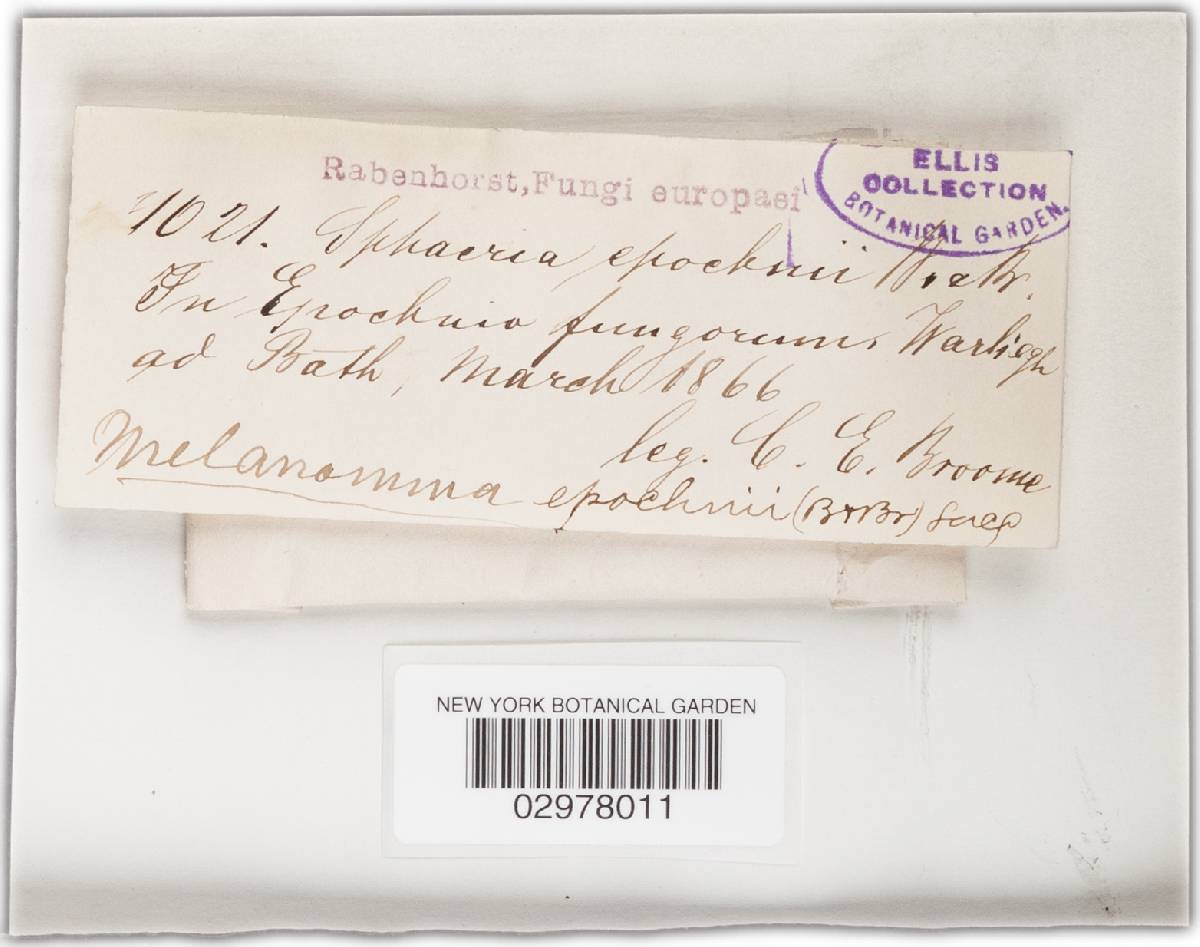 Rabenhorst, Fungi europaei
ELLIS
COLLECTION
BOTANICAL GARDEN.
1021. Sphaeria epochnii
In Epochnio fungorum, Warliegh
ad Bath, March 1866
leg. C. E. Broome
Melanomma epochnii (B&Br) Sacc
NEW YORK BOTANICAL GARDEN
02978011